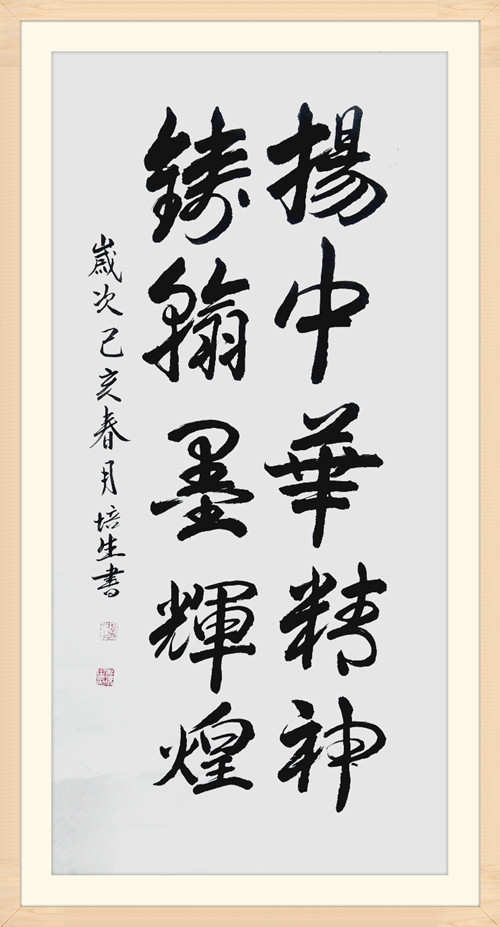 揚中華精神
鑄翰墨輝煌
歲次己亥春月培生書